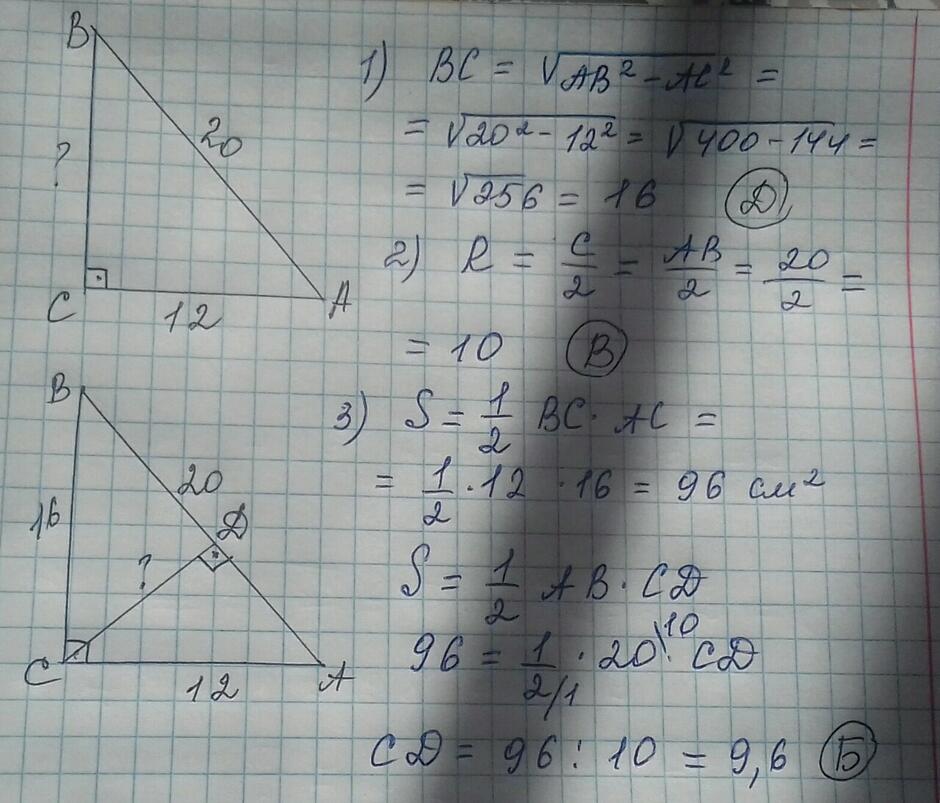 B
20
?
C
12
A
1) BC = √AB² - AC² =
= √20² - 12² = √400 - 144 =
= √256 = 16 Д
2) R = c/2 = AB/2 = 20/2 =
= 10 В
B
20
16
D
?
C
12
A
3) S = 1/2 BC · AC =
= 1/2 · 12 · 16 = 96 см²
S = 1/2 AB · CD
96 = 1/2/1 · 20\10 · CD
CD = 96 : 10 = 9,6 Б